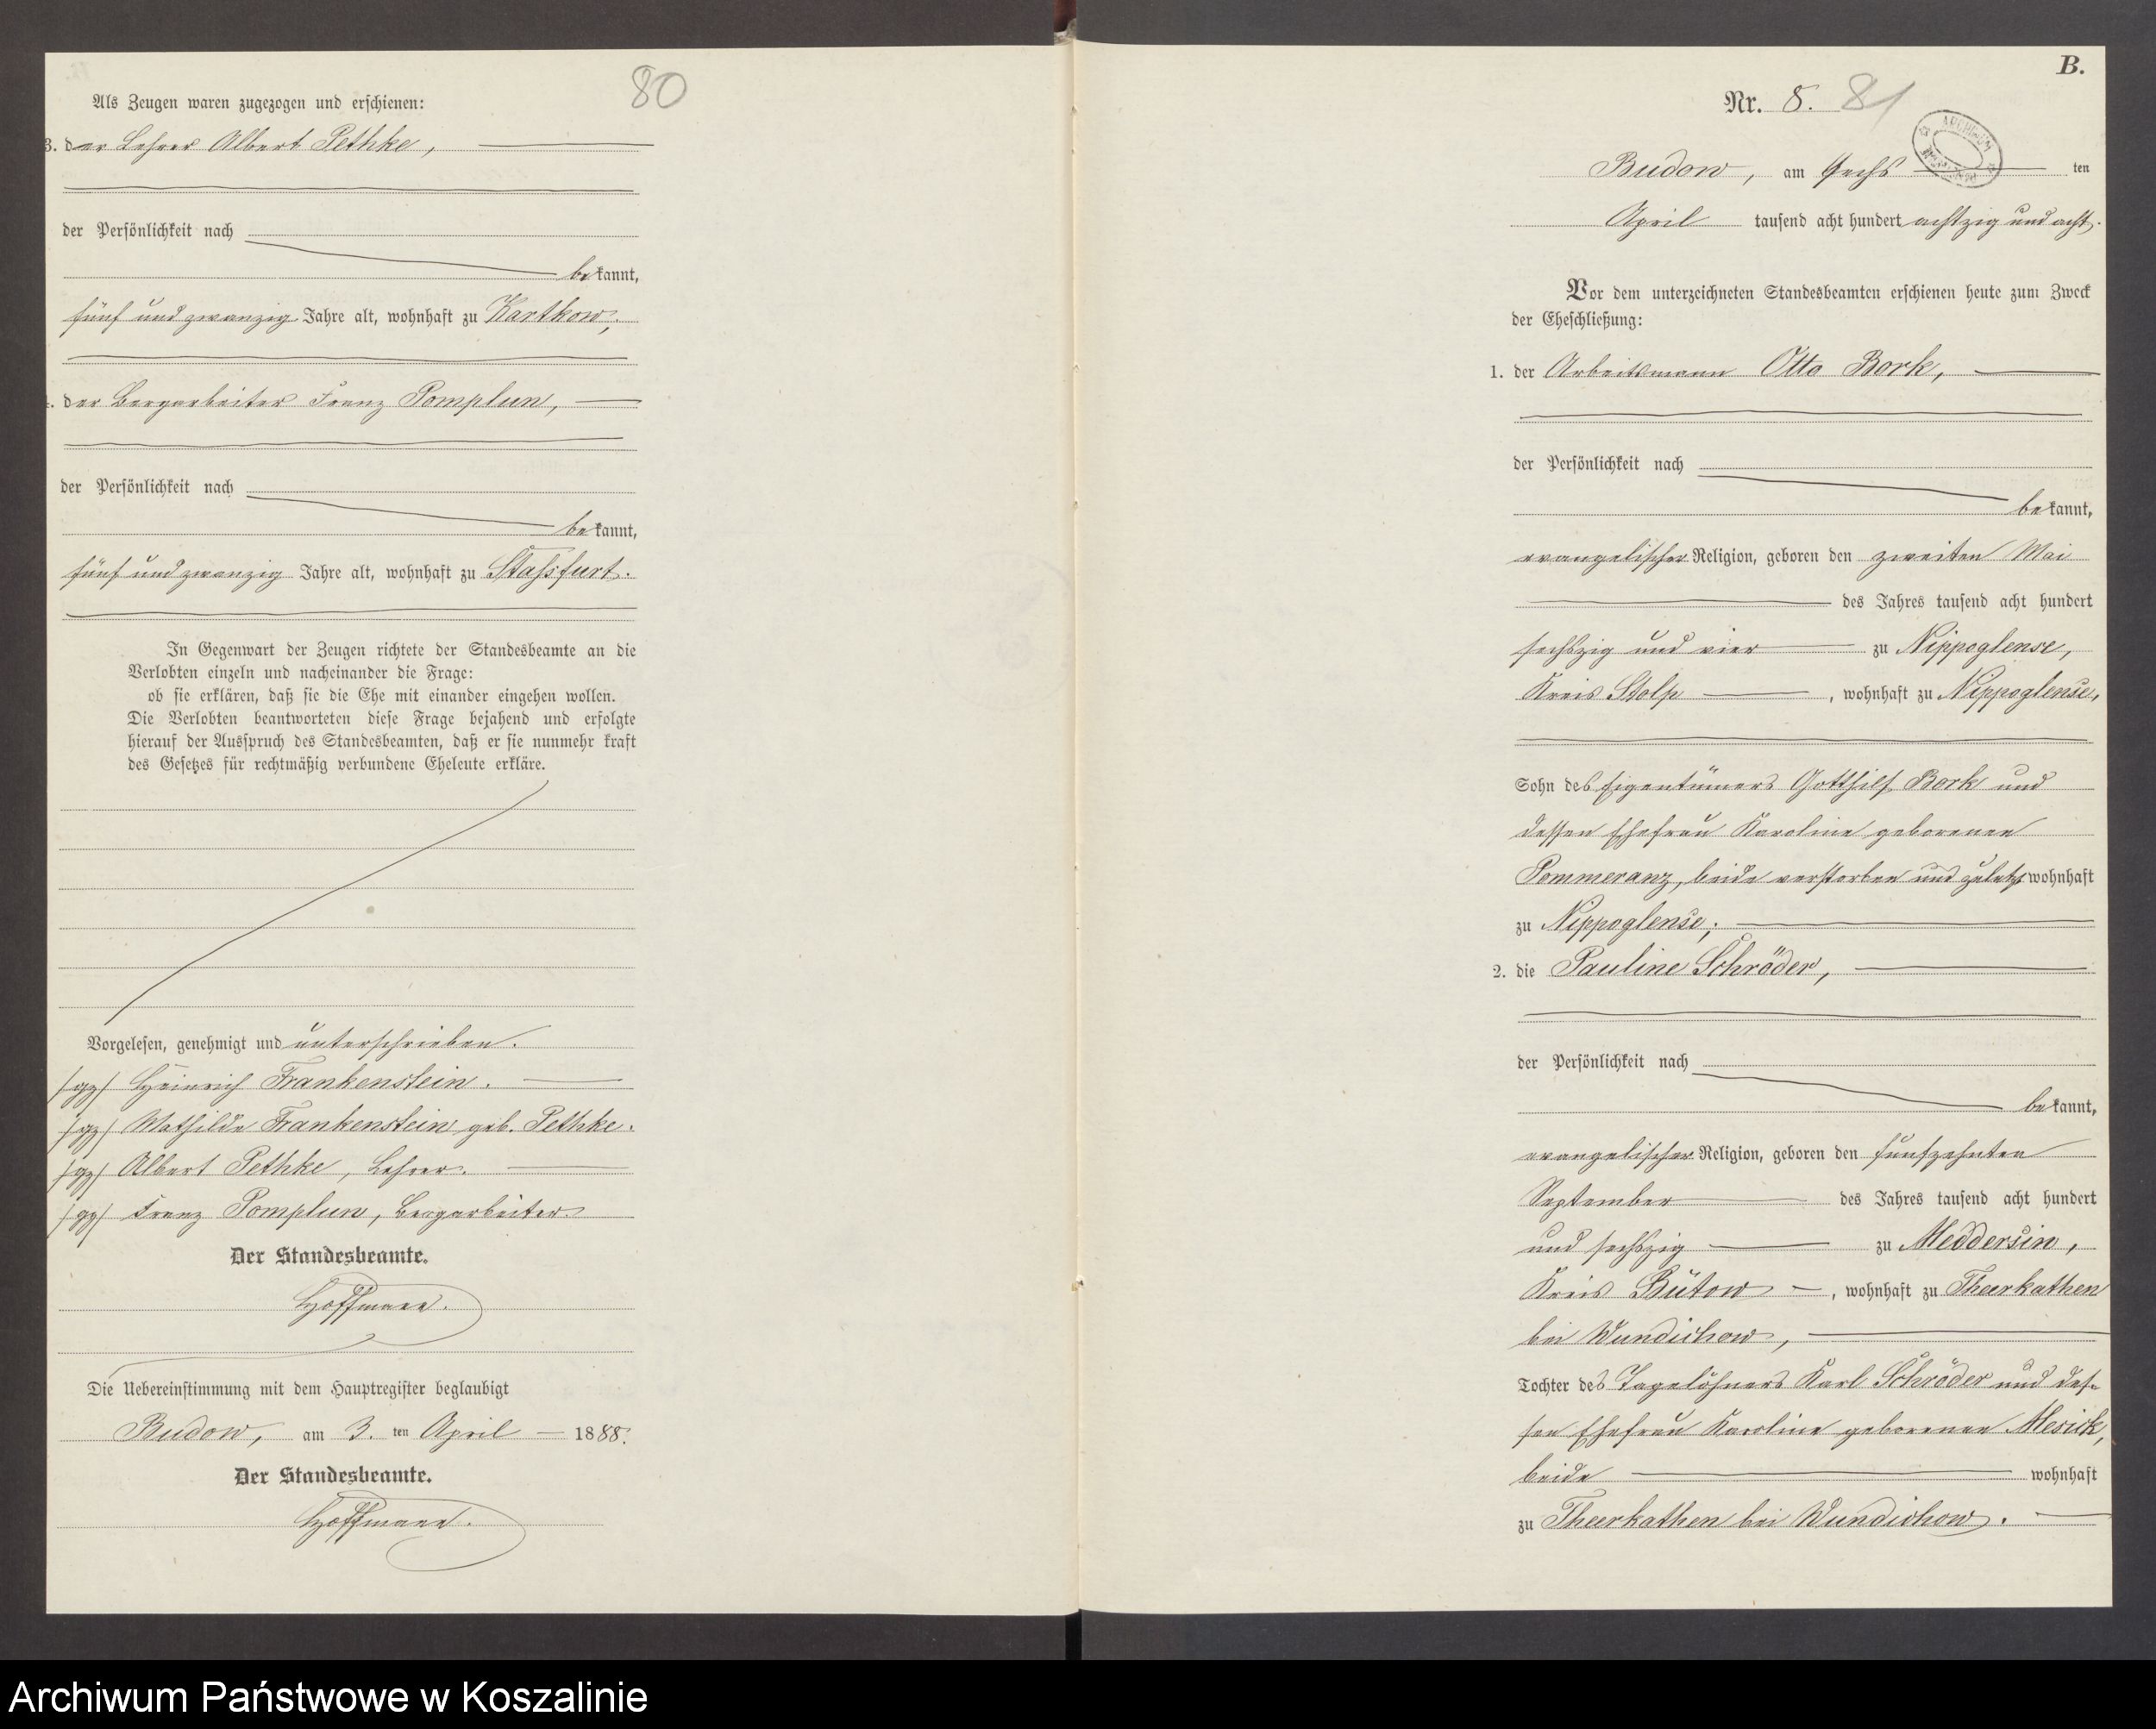 80
Als Zeugen waren zugezogen und erschienen:
3. der Lehrer Albert Pethke,
der Persönlichkeit nach
bekannt,
fünf und zwanzig Jahre alt, wohnhaft zu Kartkow;
4. der Bergarbeiter Franz Pomplun,
der Persönlichkeit nach
bekannt,
fünf und zwanzig Jahre alt, wohnhaft zu Stassfurt.
In Gegenwart der Zeugen richtete der Standesbeamte an die
Verlobten einzeln und nacheinander die Frage:
ob sie erklären, daß sie die Ehe mit einander eingehen wollen.
Die Verlobten beantworteten diese Frage bejahend und erfolgte
hierauf der Ausspruch des Standesbeamten, daß er sie nunmehr kraft
des Gesetzes für rechtmäßig verbundene Eheleute erkläre.
Vorgelesen, genehmigt und unterschrieben.
/gz/ Heinrich Frankenstein.
/gz/ Mathilde Frankenstein geb. Pethke.
/gz/ Albert Pethke, Lehrer.
/gz/ Franz Pomplun, Bergarbeiter
Der Standesbeamte.
Hoffmann.
Die Uebereinstimmung mit dem Hauptregister beglaubigt
Budow, am 3. ten April 1888.
Der Standesbeamte.
Hoffmann.
B.
Nr. 8. 81
ARCHIWUM
Budow, am Sechs ten
April tausend acht hundert achtzig und acht.
Vor dem unterzeichneten Standesbeamten erschienen heute zum Zweck
der Eheschließung:
1. der Arbeitsmann Otto Bork,
der Persönlichkeit nach
bekannt,
evangelischer Religion, geboren den zweiten Mai
des Jahres tausend acht hundert
sechszig und vier zu Nippoglense,
Kreis Stolp, wohnhaft zu Nippoglense,
Sohn des Eigentümers Gotthilf Bork und
dessen Ehefrau Karoline geborenen
Pommeranz, beide verstorben und zuletzt wohnhaft
zu Nippoglense;
2. die Pauline Schröder,
der Persönlichkeit nach
bekannt,
evangelischer Religion, geboren den fünfzehnten
September des Jahres tausend acht hundert
und sechszig zu Meddersin,
Kreis Bütow, wohnhaft zu Theerkathen
bei Wundichow,
Tochter des Tagelöhners Karl Schröder und des-
sen Ehefrau Karoline geborenen Mesick,
beide wohnhaft
zu Theerkathen bei Wundichow.
Archiwum Państwowe w Koszalinie